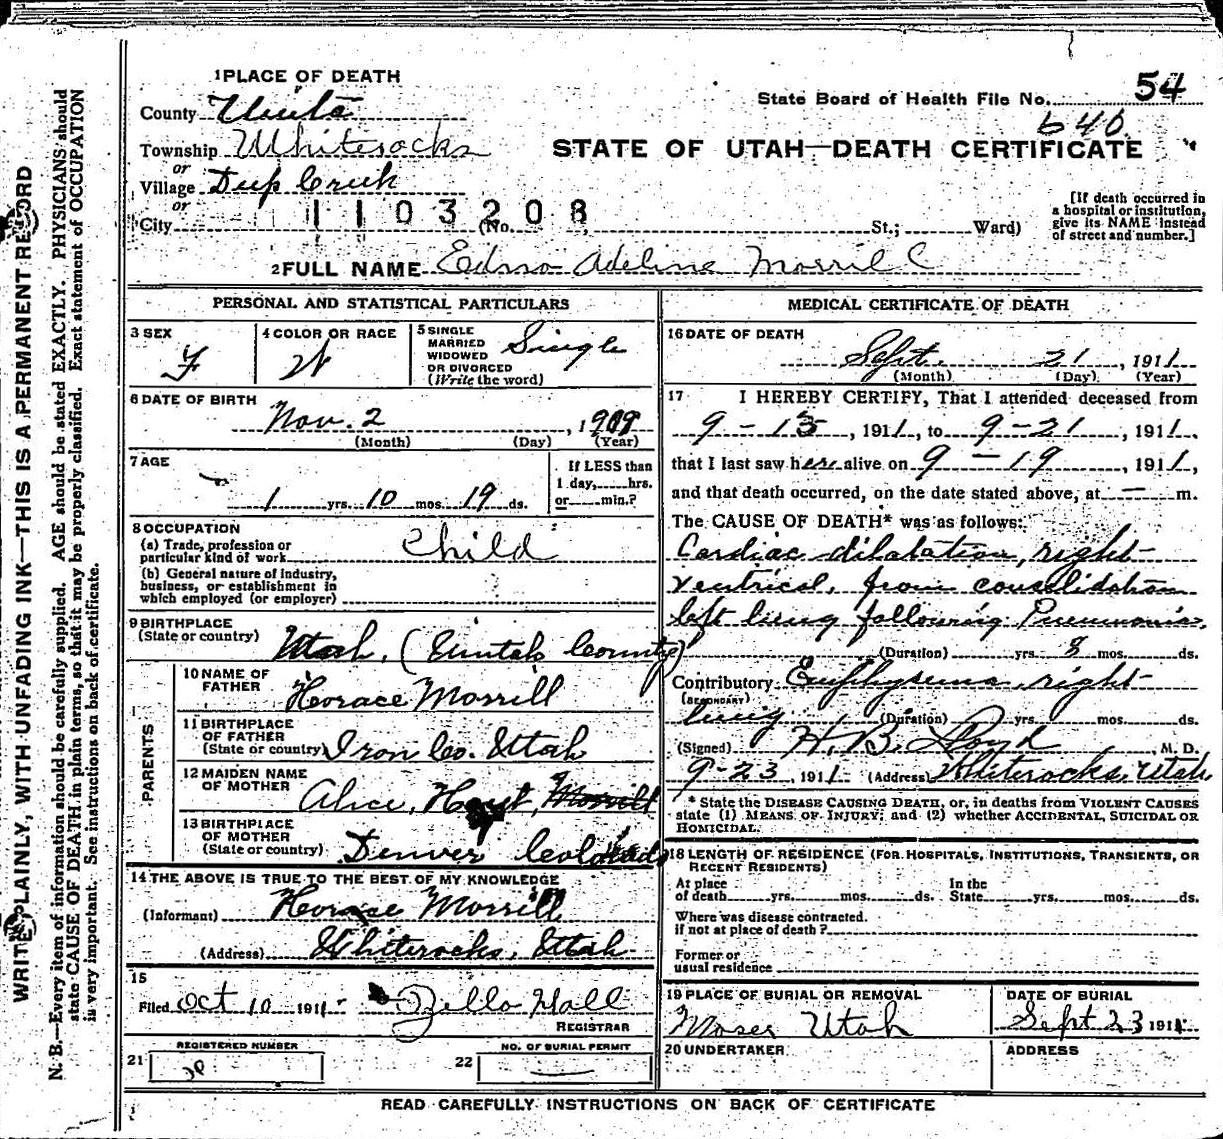 1 PLACE OF DEATH
County Uinta
Township Whiterocks
or
Village Deep Creek
or
City 1103208 (No. St.; Ward)
State Board of Health File No. 54
640
STATE OF UTAH—DEATH CERTIFICATE
[If death occurred in a hospital or institution, give its NAME instead of street and number.]
2 FULL NAME Edna Adeline Morrill
PERSONAL AND STATISTICAL PARTICULARS
3 SEX
F
4 COLOR OR RACE
W
5 SINGLE
MARRIED
WIDOWED
OR DIVORCED
(Write the word)
Single
6 DATE OF BIRTH
Nov. 2, 1909
(Month) (Day) (Year)
7 AGE
1 yrs. 10 mos. 19 ds.
If LESS than
1 day, hrs.
or min.?
8 OCCUPATION
(a) Trade, profession or
particular kind of work Child
(b) General nature of industry,
business, or establishment in
which employed (or employer)
9 BIRTHPLACE
(State or country) Utah, (Uintah County)
PARENTS
10 NAME OF
FATHER Horace Morrill
11 BIRTHPLACE
OF FATHER
(State or country) Iron Co. Utah
12 MAIDEN NAME
OF MOTHER Alice,
13 BIRTHPLACE
OF MOTHER
(State or country) Denver Colorado
14 THE ABOVE IS TRUE TO THE BEST OF MY KNOWLEDGE
(Informant) Horace Morrill
(Address) Whiterocks, Utah
15
Filed Oct 10 1911 Zella Hall
REGISTRAR
REGISTERED NUMBER
21
NO. OF BURIAL PERMIT
22 —
MEDICAL CERTIFICATE OF DEATH
16 DATE OF DEATH
Sept. 21, 1911
(Month) (Day) (Year)
17 I HEREBY CERTIFY, That I attended deceased from
9 - 13, 1911, to 9 - 21, 1911,
that I last saw her alive on 9 - 19, 1911,
and that death occurred, on the date stated above, at — m.
The CAUSE OF DEATH* was as follows:
Cardiac dilatation, right
ventrical, from consolidation
left lung following Pneumonia.
(Duration) yrs. 8 mos. ds.
Contributory Emphysema, right
(SECONDARY)
lung (Duration) yrs. mos. ds.
(Signed) H. B. Lloyd M. D.
9-23, 1911 (Address) Whiterocks, Utah
* State the DISEASE CAUSING DEATH, or, in deaths from VIOLENT CAUSES
state (1) MEANS OF INJURY; and (2) whether ACCIDENTAL, SUICIDAL OR
HOMICIDAL.
18 LENGTH OF RESIDENCE (FOR HOSPITALS, INSTITUTIONS, TRANSIENTS, OR
RECENT RESIDENTS)
At place
of death yrs. mos. ds.
In the
State yrs. mos. ds.
Where was disease contracted.
if not at place of death?
Former or
usual residence
19 PLACE OF BURIAL OR REMOVAL
Moser Utah
DATE OF BURIAL
Sept 23 1911
20 UNDERTAKER
ADDRESS
READ CAREFULLY INSTRUCTIONS ON BACK OF CERTIFICATE
WRITE PLAINLY, WITH UNFADING INK—THIS IS A PERMANENT RECORD
N. B.—Every item of information should be carefully supplied. AGE should be stated EXACTLY. PHYSICIANS should
state CAUSE OF DEATH in plain terms, so that it may be properly classified. Exact statement of OCCUPATION
is very important. See instructions on back of certificate.